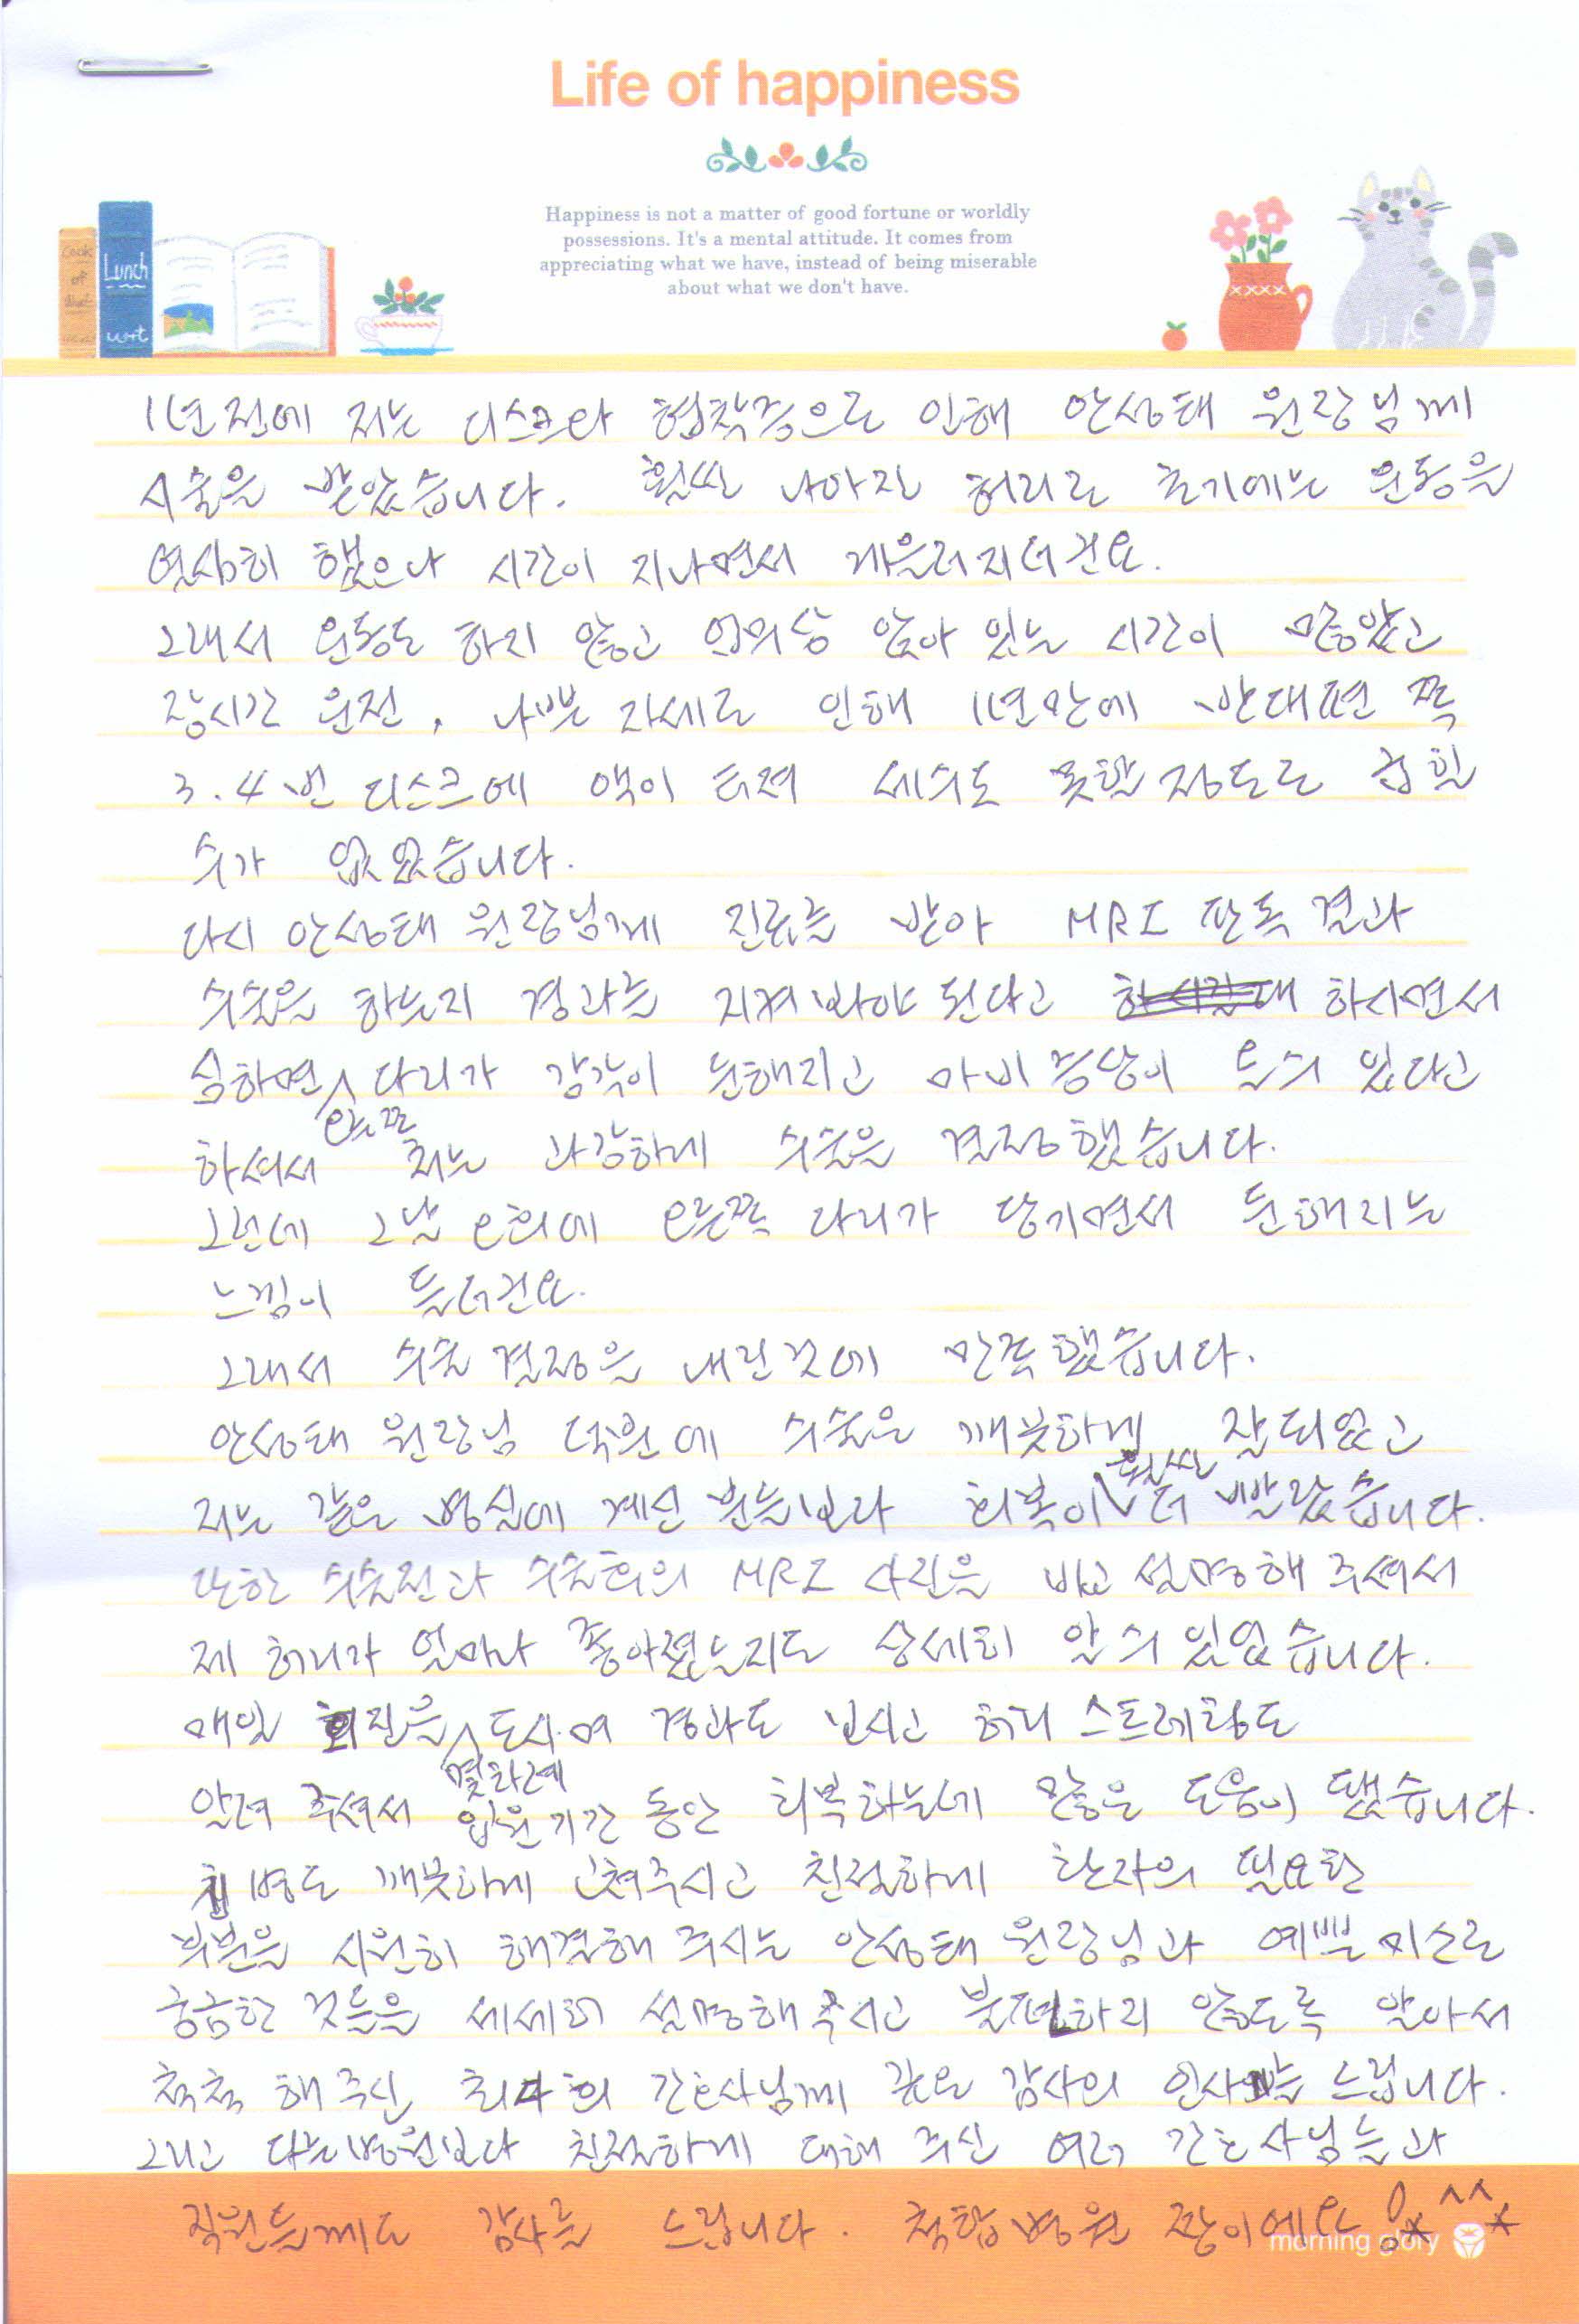 Life of happiness
Happiness is not a matter of good fortune or worldly
possessions. It's a mental attitude. It comes from
appreciating what we have, instead of being miserable
about what we don't have.
Cook
of
Lunch
1년전에 저는 디스크와 협착증으로 인해 안상태 원장님께
시술을 받았습니다. 훨씬 나아진 허리로 초기에는 운동을
열심히 했으나 시간이 지나면서 게을러지더군요.
그래서 운동도 하지 않고 의외상 앉아 있는 시간이 많았고
장시간 운전, 나쁜 자세로 인해 1년만에 반대편 쪽
3.4번 디스크에 액이 터져 세수도 못할 정도로 굽힐
수가 없었습니다.
다시 안상태 원장님께 진료를 받아 MRI 판독 결과
수술을 하는지 경과를 지켜봐야 된다고 하시면서
심하면 왼쪽 다리가 감각이 둔해지고 마비증상이 올수 있다고
하셔서 저는 과감하게 수술을 결정했습니다.
그런데 그날 오후에 왼쪽 다리가 당기면서 둔해지는
느낌이 들더군요.
그래서 수술 결정을 내린것에 만족했습니다.
안상태 원장님 덕분에 수술은 깨끗하게 잘되었고
저는 같은 병실에 계신 분들보다 회복이 훨씬 더 빨랐습니다.
또한 수술전과 수술후의 MRI 사진을 보고 설명해 주셔서
제 허리가 얼마나 좋아졌는지도 상세히 알수 있었습니다.
매일 회진을 몇차례 도시며 경과도 보시고 허리 스트레칭도
알려 주셔서 입원기간 동안 회복하는데 많은 도움이 됐습니다.
병도 깨끗하게 고쳐주시고 친절하게 환자의 필요한
부분을 시원히 해결해 주시는 안상태 원장님과 예쁜 미소로
궁금한 것들을 세세히 설명해 주시고 불편하지 않도록 알아서
척척 해주신 간호사님께 깊은 감사의 인사말을 드립니다.
그리고 다른병원보다 친절하게 대해 주신 여러 간호사님들과
직원들께도 감사를 드립니다. 척합병원 짱이에요! ^^
morning glory